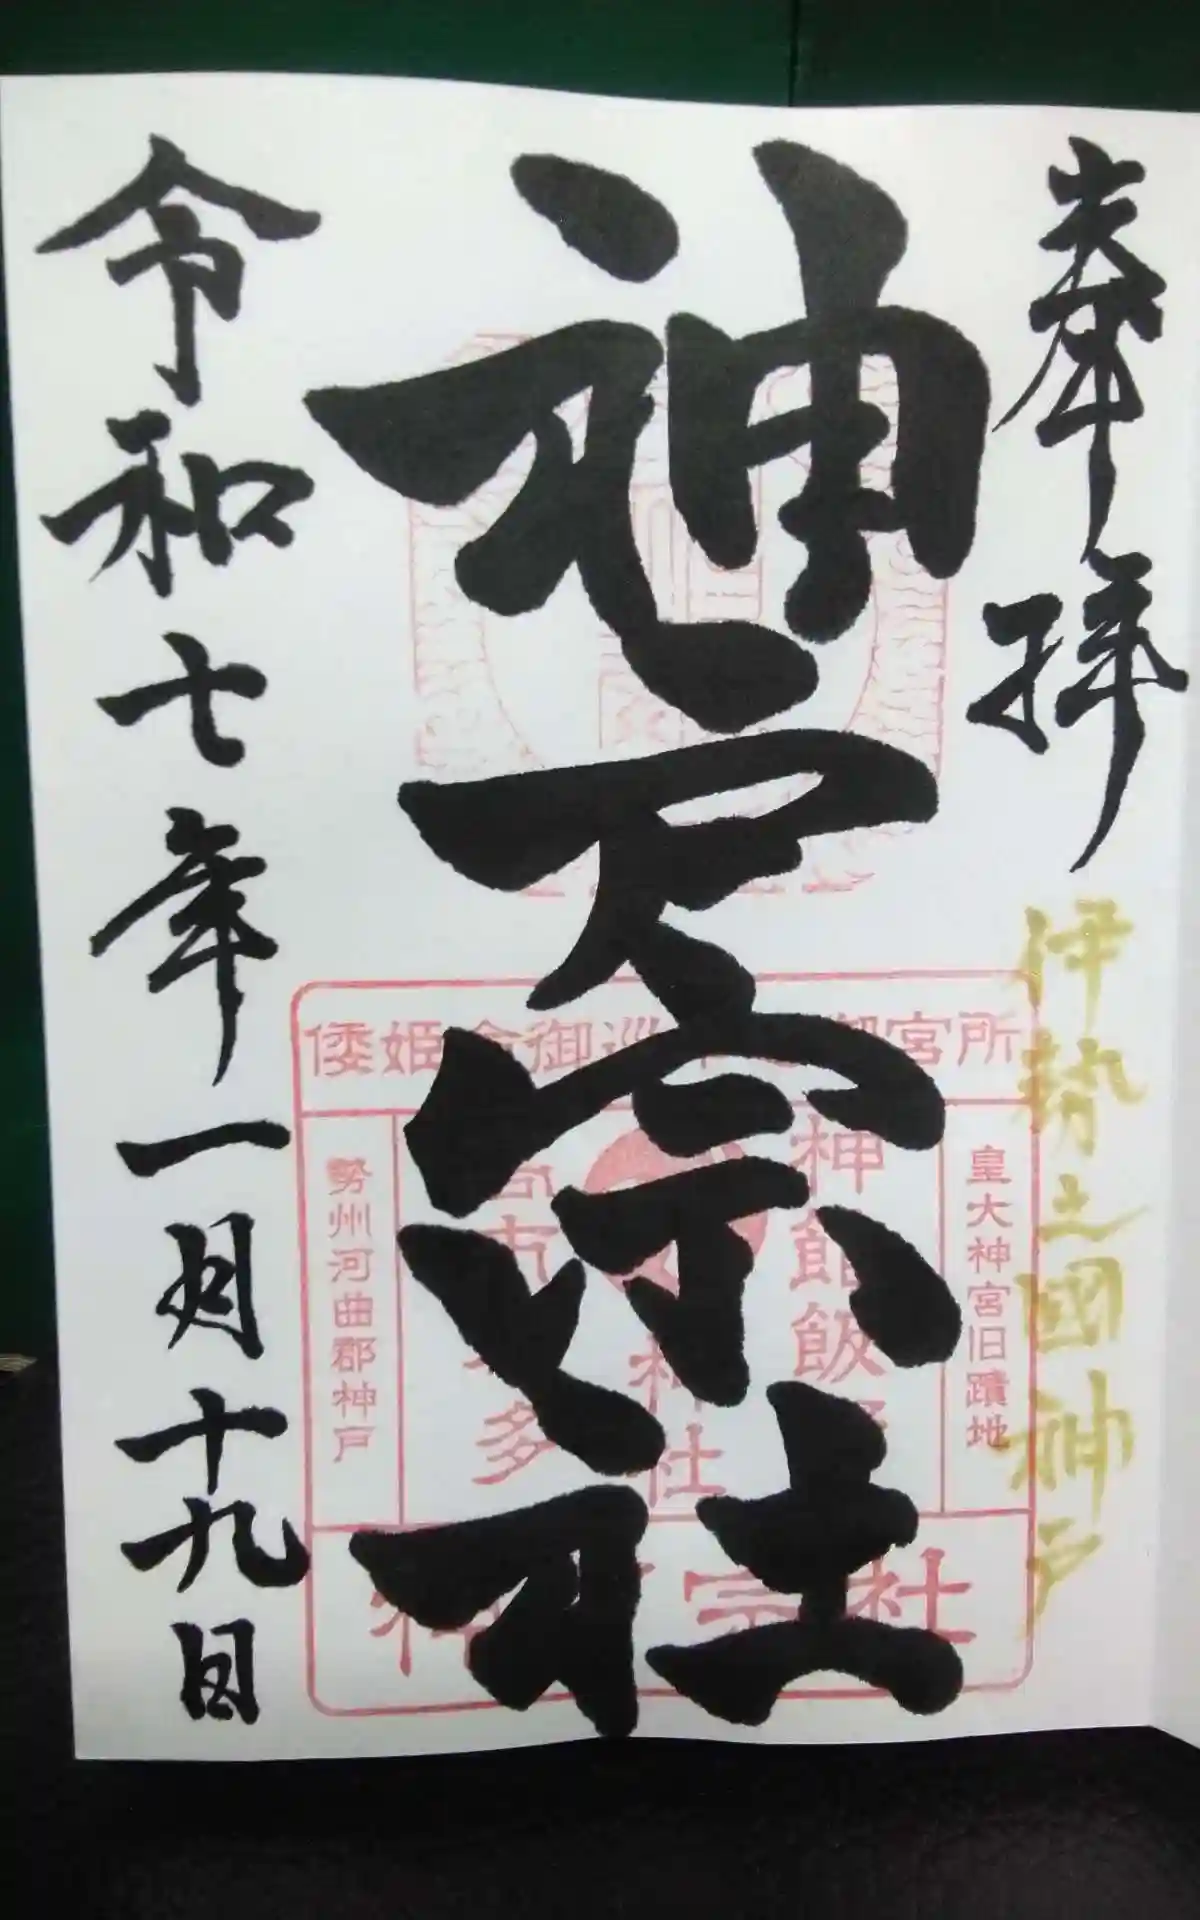 奉拝
伊勢之國神戸
神戸宗社
令和七年一月十九日
倭姫命御巡 宮所
皇大神宮旧蹟地
神館飯
神社
多
勢州河曲郡神戸
神 宗社